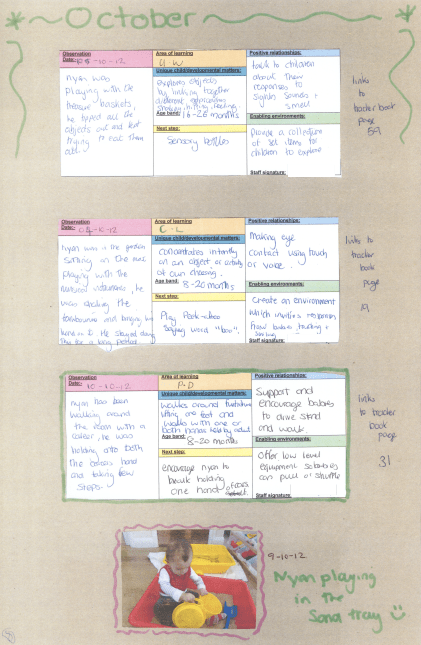 October
Observation
Date:- 8-10-12
nyan was
playing with the
treasure baskets,
he tipped all the
objects out and kept
trying to
Area of learning
U-W
Unique child/developmental matters:
explores objects
by linking together
different approaches
shaking, hitting, feeling
Age band: 16-26 months
Next step:
Sensory bottles
Positive relationships:
talk to children
about their
responses to
sights sounds +
smell
Enabling environments:
Provide a collection
of items for
children to explore
Staff signature:
links
to
tracker book
page
59
Observation
Date:- -10-12
nyan was in the garden
sitting on the mat
playing with the
musical instruments, he
was shaking the
tambourine and banging his
hand on it. He stayed doing
this for a long period
Area of learning
C-L
Unique child/developmental matters:
Concentrates intently
on an object or activity
of own choosing.
Age band: 8-20 months
Next step:
Play Peek-a-boo
saying word "boo".
Positive relationships:
making eye
contact using touch
or voice.
Enabling environments:
Create an environment
which invites responses
from babies, touching +
Staff signature:
links to
tracker
book
page
19
Observation
Date:- 10-10-12
nyan has been
walking around
the room with a
career, he was
holding onto both
the careers hand
and taking few
steps.
Area of learning
P-D
Unique child/developmental matters:
walks around furniture
lifting one foot and
walks with one or
both hands held by adult
Age band: 8-20 months
Next step:
encourage nyan to
walk holding
one hand of
Positive relationships:
Support and
encourage babies
to drive stand
and walk.
Enabling environments:
Offer low level
equipment so babies
can pull or shuffle
Staff signature:
links
to tracker
book
page
31
9-10-12
Nyan playing
in the
Sand tray